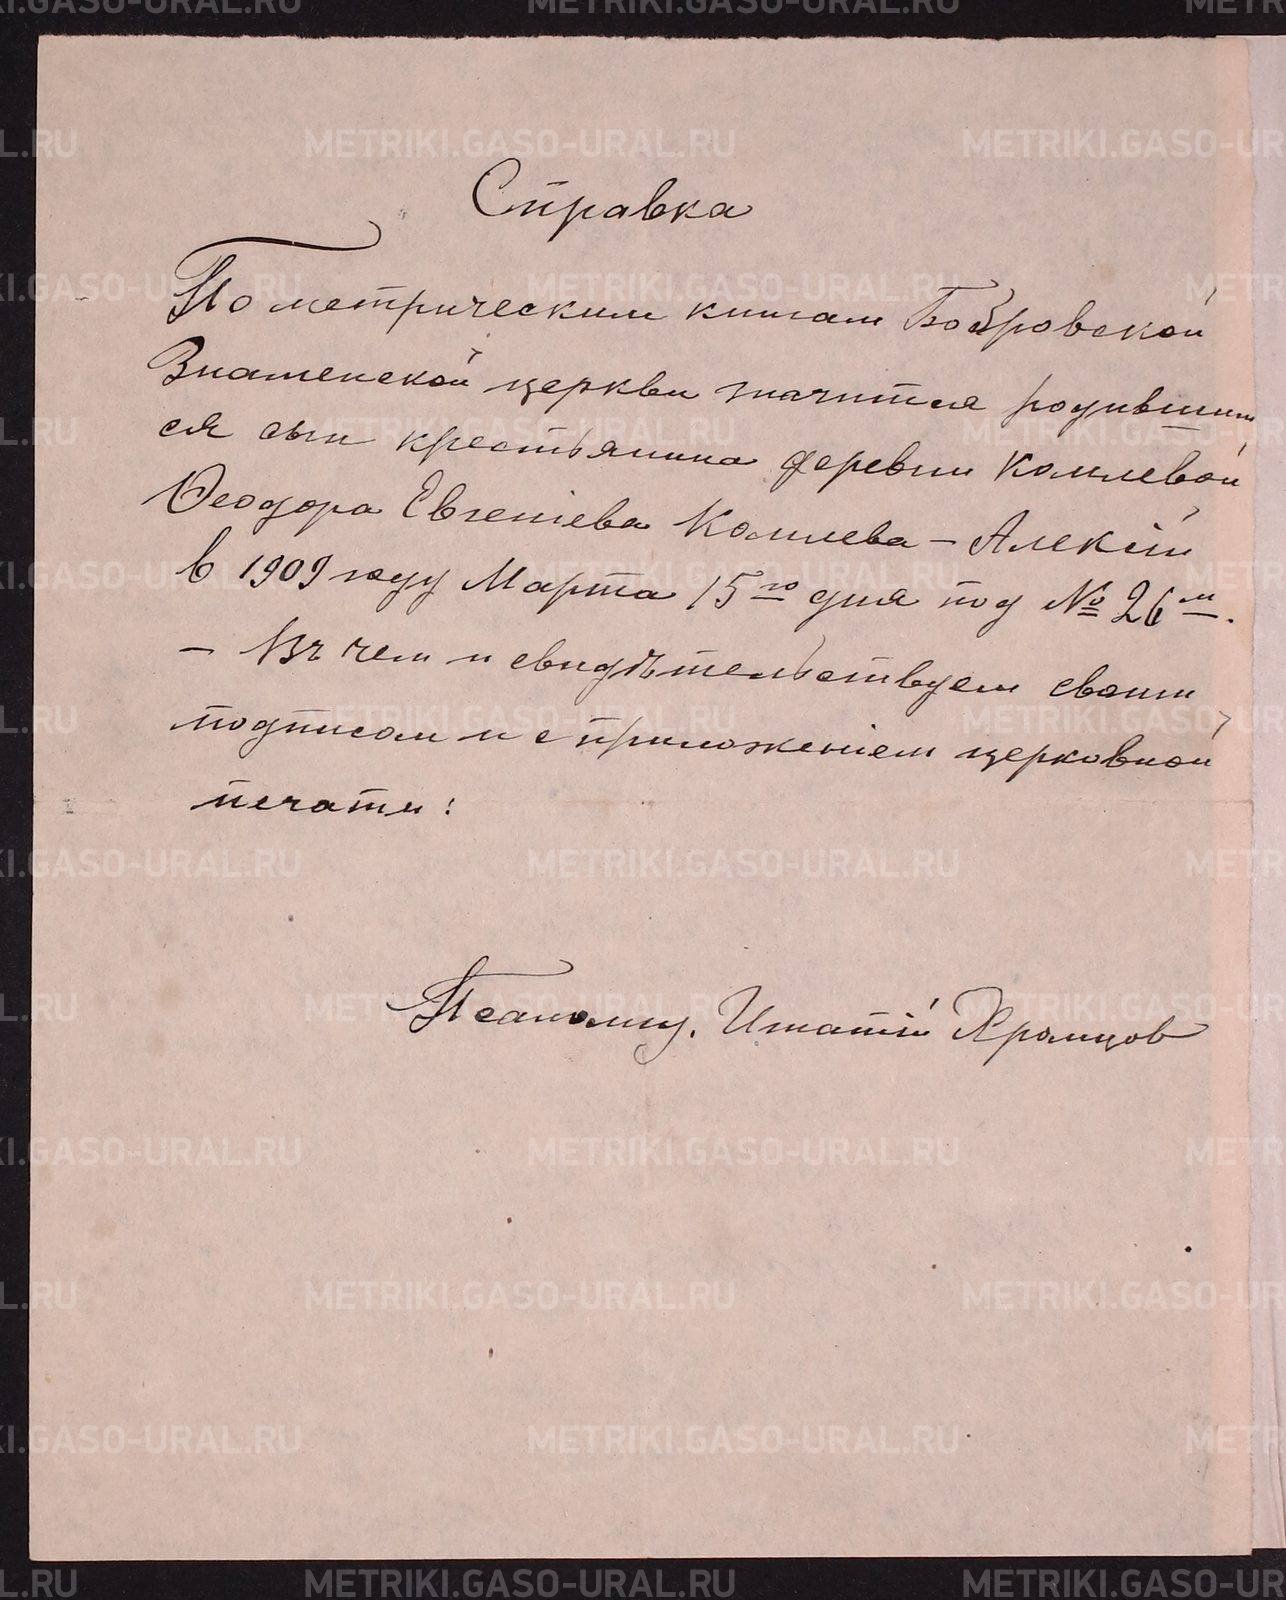 Справка
По метрическим книгам Бобровской
Знаменской церкви значится родившим
ся сын крестьянина деревни Комлевой
Ѳеодора Евгеніева Комлева – Алексій
в 1909 году Марта 15го дня под № 26м.
– Въ чем и свидѣтельствуем своим
подписом и с приложеніем церковной
печати:
Псаломщ. Игнатій Храмцов
METRIKI.GASO-URAL.RU